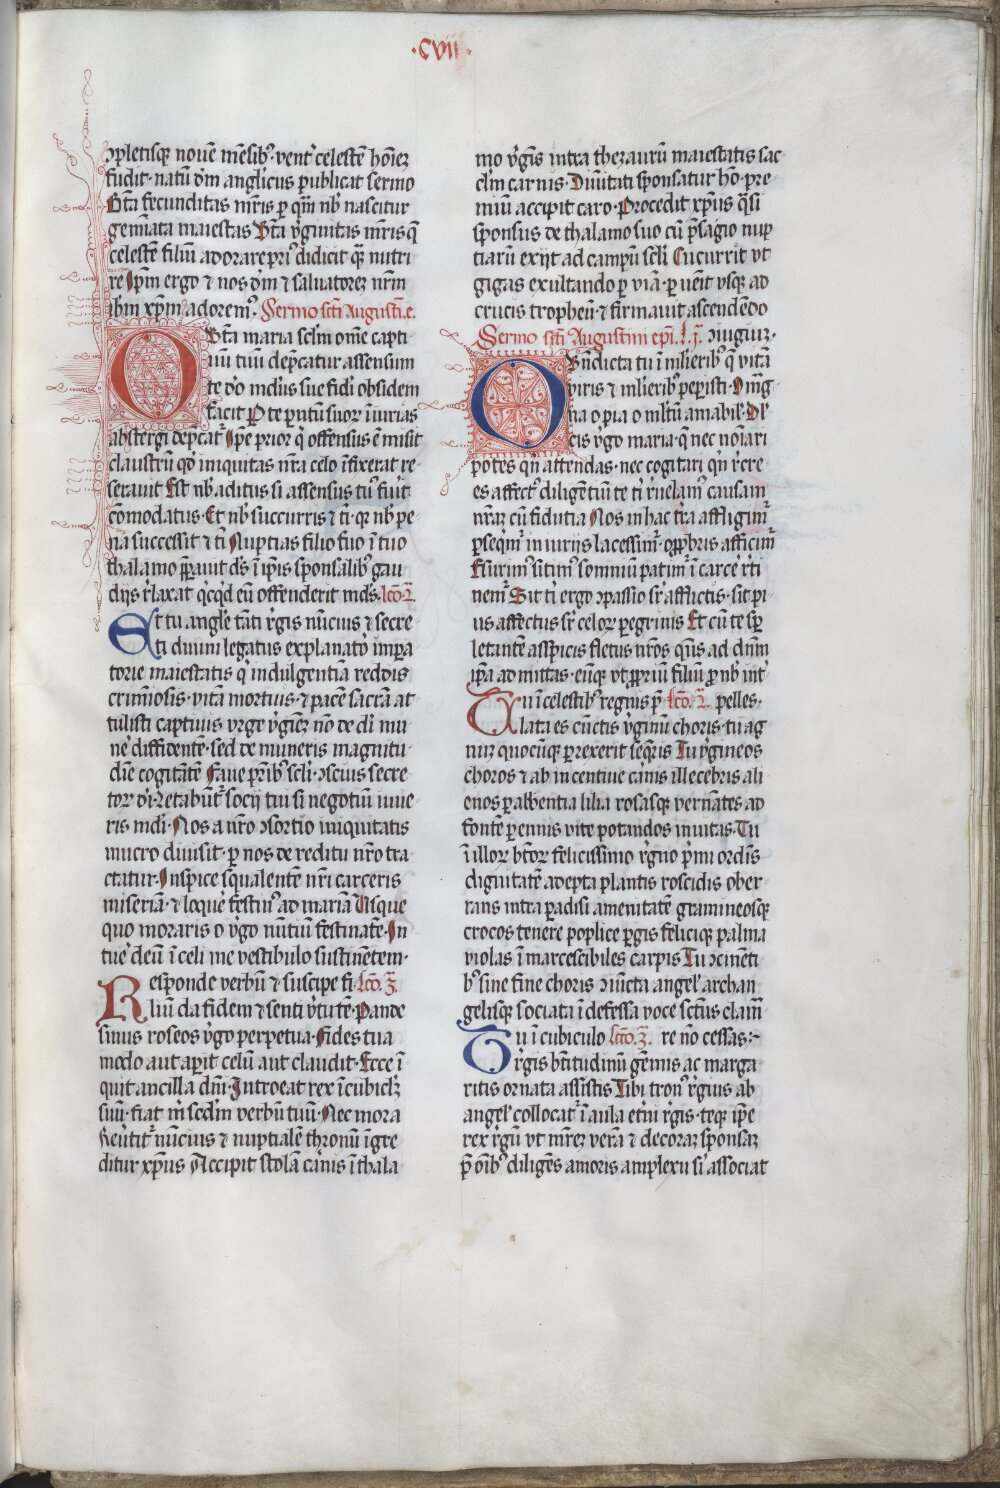 ·cvii·
ɔpletisqꝫ nouē mēsibꝰ· vent᷑ celestē hoīeꝫ
fudit· natū dm̄ anglicus publicat sermo
Bt̄a fecunditas mr̄is ꝑ qm̄ nb̄ nascitur
gemīata maiestas Bt̄a v̄gīnitas mr̄is q̄
celestē filiū adorare pri᷒ didicit qm̄ nutri
re Ip̄m ergo ⁊ nos dm̄ ⁊ saluatoreꝫ nr̄m
ihm xp̄m adoremꝰ· Sermo scti Augusti.e.
O Bt̄a maria sclm̄ om̄e capti
uū tuū dep̄catur assensum
te dō mdius sue fidī obsidem
facit Po te putū suoꝝ īiurias
abstergi dep̄cat᷑ Ip̄e prior q̄ offensus ē misit
claustrū qd̄ iniquitas nr̄a celo īfixerat re
serauit Est nb̄ aditus si assensus tuꝰ fuīt
cōmodatus· Et nb̄ succurris ⁊ ti· qꝫ nb̄ pe
na successit ⁊ ti Nuptias filio suo ī tuo
thalamo ꝑpauit ds̄ ī ip̄is sponsalibꝰ gau
dijs r̄laxat qͥcqͥd eū offenderit mds̄. lcō.2.
Et tu angle tāti v̄gis nūcius ⁊ secre
ti diuini legatus explanator̄ impa
torie maiestatis q̄ indulgentiā reddis
crimīosis· vitā mortuis· ⁊ pacē sacrā at
tulisti captiuis vrge v̄gineꝫ nō de di mu
ne diffidentē· sed de muneris magnitu
dīe cogitātē faue pribꝰ scli· ɔscius secre
toꝝ di· letabūt᷑ socij tui si negotiū iuue
ris mdi· Nos a nr̄o ɔsortio iniquitatis
mucro diuisit· ꝑ nos de reditu nr̄o tra
ctatur· Inspice squalentē nr̄i carceris
miseriā· ⁊ loqueꝰ festinꝰ ad mariā Vsque
quo moraris o v̄go nūtiū festinātē· In
tue deū ī celi me vestibulo sustinētem·
Responde verbū ⁊ suscipe fi lcō.3.
liū da fidem ⁊ senti v̄tutē· Pande
sinus roseos v̄go perpetua· fides tua
modo aut apit celū aut claudit· Ecce ī
quit ancilla dn̄i· Introeat rex ī cubicl̄ꝫ
suū· fiat m̄ scd̄m verbū tuū· Nec mora
reūtit᷑ nūcius ⁊ nuptialē thronū īgre
ditur xp̄us Accipit stolā cānis ī thala
mo v̄gis intra thezaurū maiestatis sac
clm̄ carnis· Diuītati sponsatur hō· pre
miū accipit caro· Procedit xp̄us qͣsi
sponsus de thalamo suo cū p̄sagio nup
tiarū exijt ad campū scli Cucurrit vt
gigas exultando ꝑ viā· ꝑuēit vsqꝫ ad
crucis trophēn· ⁊ firmauit ascendēdo
Sermo scti Augustini epī. l. j. ɔiugiuꝫ·
O Bn̄dicta tu ī mlieribꝰ q̄ vitā
viris ⁊ mlieribꝰ peperisti· O mg̅
na o pia o mltū amabil· Dl̄
cis v̄go maria· q̄ nec noīari
potes qn̄ attendas· nec cogitari qn̄ r̄cre
es affectꝰ diligētiū te ti r̄uelam᷒ causam
nr̄aꝫ cū fidutia Nos in hac tr̄a affligim᷑
ꝑseqm᷑ in iurijs lacessim᷑· opp̄bris afficim᷑
Esurimꝰ sitimꝰ somniū patim᷑ ī carce r̄ti
nem᷑ Sit ti ergo ɔpassio sꝑ afflictis· sit pi
us affectus sꝑ celoꝝ peregrinis Et cū te sꝑ
letantē aspicis fletus nr̄os qm̄s ad dn̄m
ip̄a admittas· eūqꝫ vt ꝓpriū filiū ꝓ nb̄ int᷑
Tu ī celestibꝰ regnis ꝑ lcō. 2. pelles·
lata es cūctis v̄ginū choris· tu ag
nuꝫ quocūqꝫ ꝑrexerit seq̄ris Tu v̄gineos
choros ⁊ ab incentiue cānis illecebris ali
enos ꝑ albentia lilia rosasqꝫ vernātes ad
fontē ꝑennis vite potandos inuitas· Tu
ī illoꝝ btōꝝ felicissimo r̄gno ꝑmi ordīs
dignitatē adepta plantis roscidis ober
rans intra ꝑadisi amenitatē gramineosqꝫ
crocos tenere poplice ꝑgis feliciqꝫ palma
violas ī marcescibiles carpis Tu ɔcinēti
bꝰ sine fine choris ɔiūcta angelꝰ archan
gelisqꝫ sociata ī defessa voce sctus clam᷑
Tu ī cubiculo lcō.3. re nō cessas:~
r̄gis btītudinū gēmis ac marga
ritis ornata assistis Tibi tronꝰ r̄gius ab
angelꝰ collocat᷑ ī aula et̄ni r̄gis· teqꝫ ip̄e
rex r̄gū vt mr̄eꝫ verā ⁊ decoraꝫ sponsaꝫ
p̄ oībꝰ diligēs amoris amplexu si associat